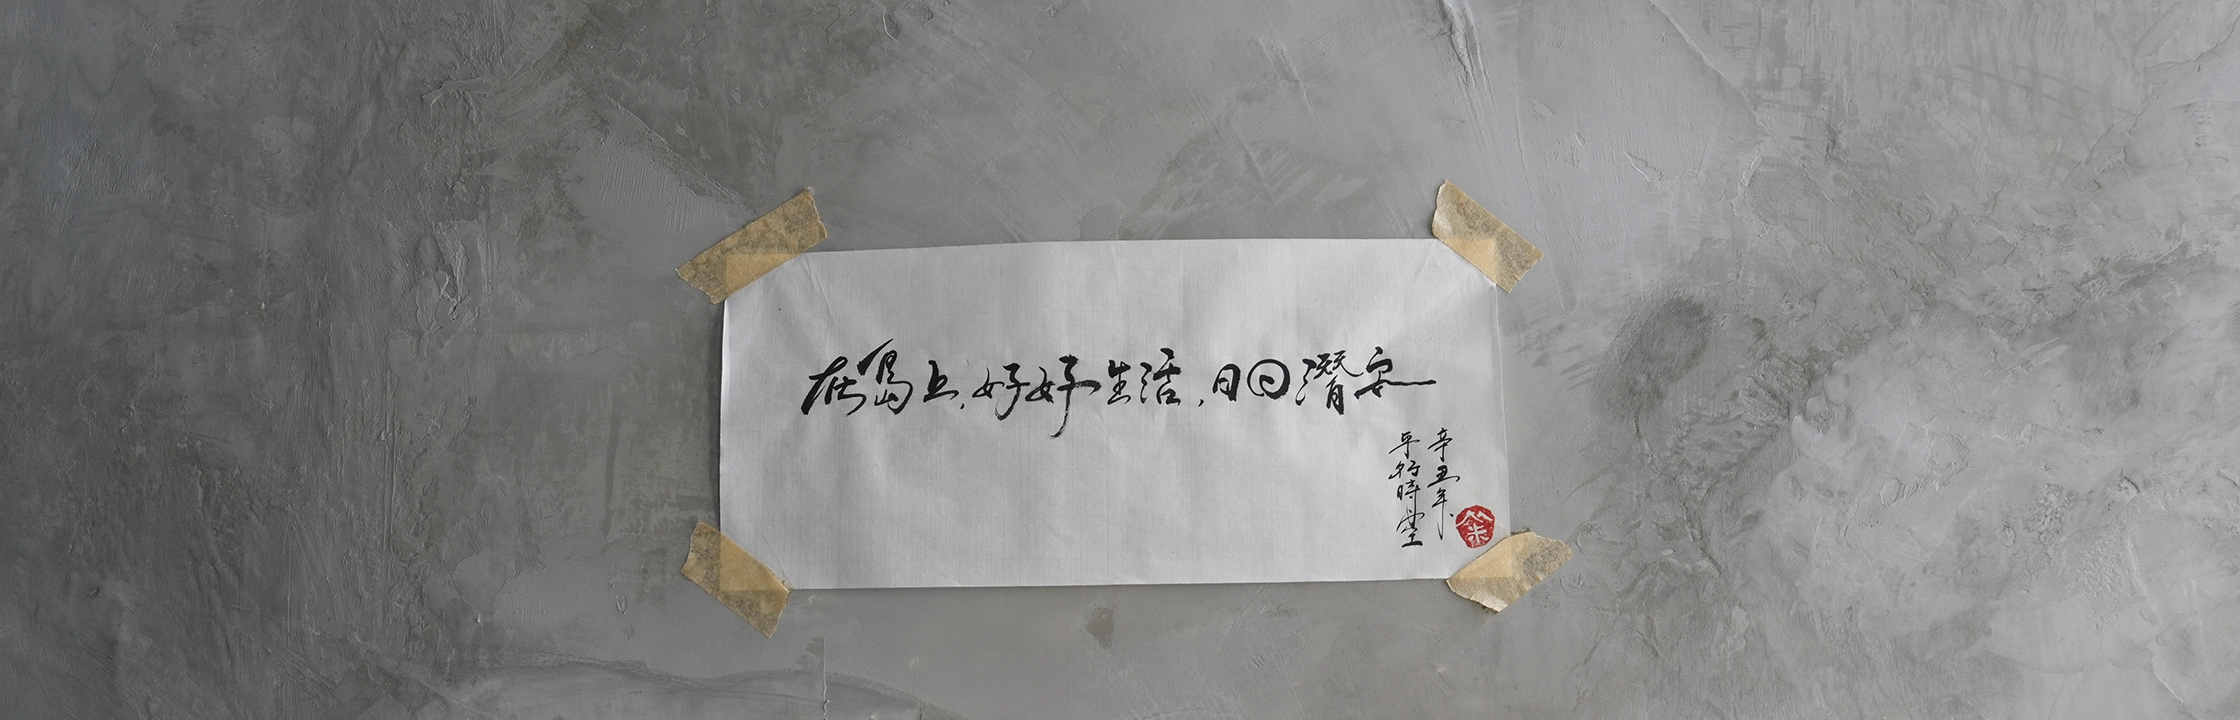 在島上,好好生活,日日潛安
辛丑年、
平行時空